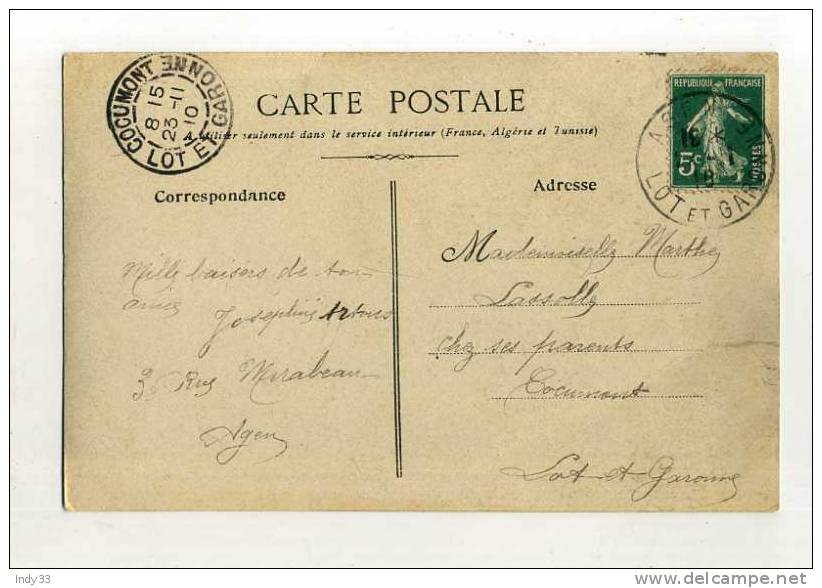 COCUMONT
LOT ET GARONNE
8 15
23 -11
10
CARTE POSTALE
A utiliser seulement dans le service intérieur (France, Algérie et Tunisie)
REPUBLIQUE FRANÇAISE
5c
POSTES
LOT ET GARON
Correspondance
Adresse
Mille baisers de ton
amie
Joséphine
3 Rue Mirabeau
Agen
Mademoiselle Marthe
Lassolle
chez ses parents
Cocumont
Lot et Garonne
Indy33
delcampe.net